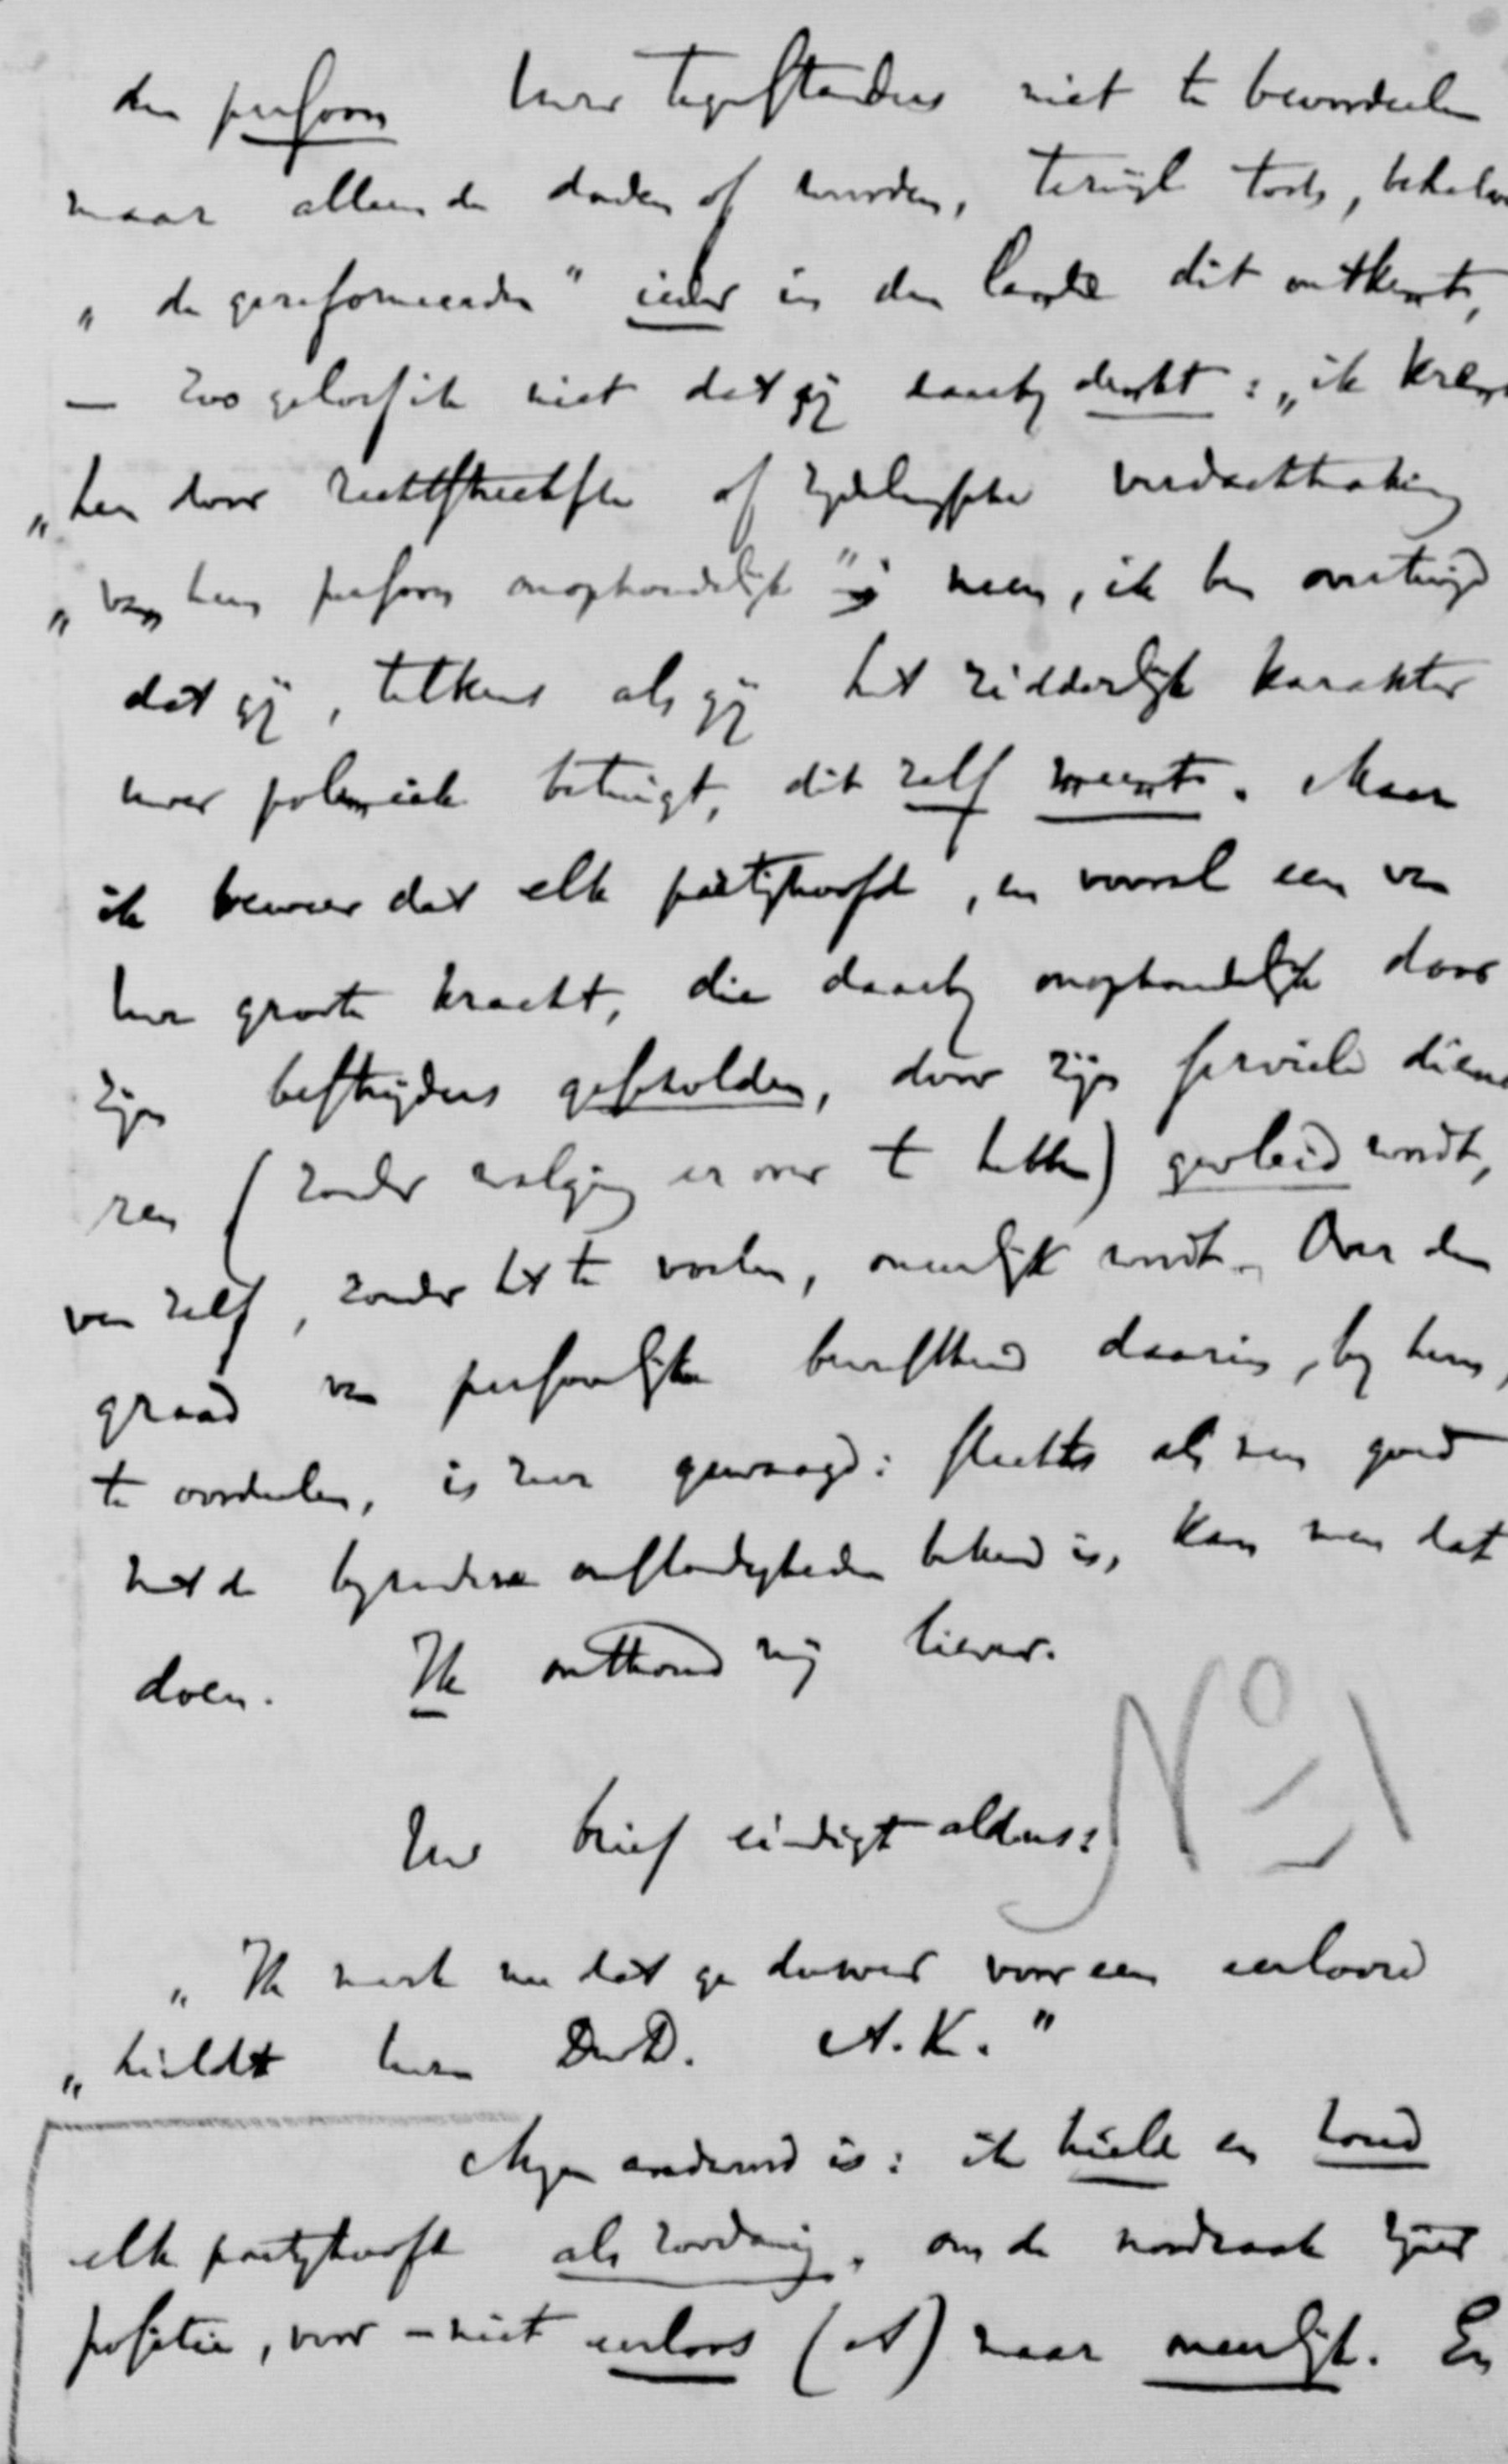 den persoon uwer tegenstanders niet te beoordeelen
maar alleen de daden of woorden, terwijl toch, behalve
„ de gereformeerden " ieder in den lande dit ontkent,
— zoo geloof ik niet dat gij daarby denkt: „ik krenk
„hen door rechtstreeksche of zydelingsche verdachtmaking
„van hun persoon onophoudelijk"; neen, ik ben overtuigd
dat gij, telkens als gij het ridderlijk karakter
uwer polemiek betuigt, dit zelf meent. Maar
ik beweer dat elk partijhoofd, en vooral een van
uw groote kracht, die daarby onophoudelijk door
zijn bestrijders gescholden, door zijn serviele diena
ren (zonder walging er over te hebben) gevleid wordt,
van zelf, zonder het te voelen, oneerlijk wordt. Over den
graad van persoonlijke bewustheid daarin, by hem,
te oordeelen, is zeer gewaagd: slechts als men goed
met de byzondere omstandigheden bekend is, kan men dat
doen. Ik onthoud mij liever.
No 1
Uw brief eindigt aldus:
„ Ik merk nu dat ge dusver voor een eerloos
„ hieldt uwen Dw.D. A.K."
Myn antwoord is: ik hield en houd
elk partyhoofd als zoodanig, om de noodzaak zijner
positie, voor – niet eerloos (A) maar oneerlijk. En